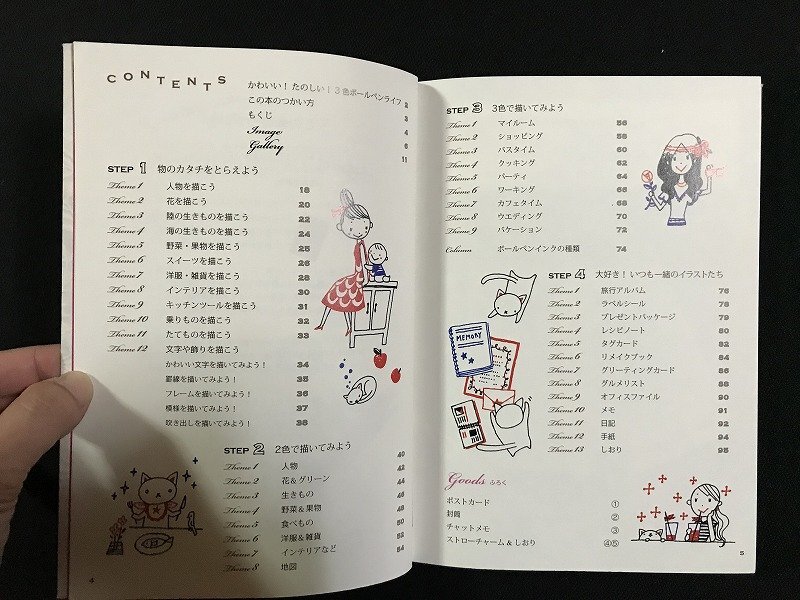 CONTENTS
かわいい！たのしい！3色ボールペンライフ 2
この本のつかい方 3
もくじ 4
Image 6
Gallery 11
STEP 1 物のカタチをとらえよう
Theme 1 人物を描こう 18
Theme 2 花を描こう 20
Theme 3 陸の生きものを描こう 22
Theme 4 海の生きものを描こう 24
Theme 5 野菜・果物を描こう 25
Theme 6 スイーツを描こう 26
Theme 7 洋服・雑貨を描こう 28
Theme 8 インテリアを描こう 30
Theme 9 キッチンツールを描こう 31
Theme 10 乗りものを描こう 32
Theme 11 たてものを描こう 33
Theme 12 文字や飾りを描こう
かわいい文字を描いてみよう！ 34
罫線を描いてみよう！ 35
フレームを描いてみよう！ 36
模様を描いてみよう！ 37
吹き出しを描いてみよう！ 38
STEP 2 2色で描いてみよう 40
Theme 1 人物 42
Theme 2 花＆グリーン 44
Theme 3 生きもの 46
Theme 4 野菜＆果物 48
Theme 5 食べもの 50
Theme 6 洋服＆雑貨 52
Theme 7 インテリアなど 54
Theme 8 地図
4
STEP 3 3色で描いてみよう
Theme 1 マイルーム 56
Theme 2 ショッピング 58
Theme 3 バスタイム 60
Theme 4 クッキング 62
Theme 5 パーティ 64
Theme 6 ワーキング 66
Theme 7 カフェタイム 68
Theme 8 ウエディング 70
Theme 9 バケーション 72
Column ボールペンインクの種類 74
STEP 4 大好き！いつも一緒のイラストたち
Theme 1 旅行アルバム 76
Theme 2 ラベルシール 78
Theme 3 プレゼントパッケージ 79
Theme 4 レシピノート 80
Theme 5 タグカード 82
Theme 6 リメイクブック 84
Theme 7 グリーティングカード 86
Theme 8 グルメリスト 88
Theme 9 オフィスファイル 90
Theme 10 メモ 91
Theme 11 日記 92
Theme 12 手紙 94
Theme 13 しおり 95
MEMORY
Goods ふろく
ポストカード ①
封筒 ②
チャットメモ ③
ストローチャーム＆しおり ④⑤
5